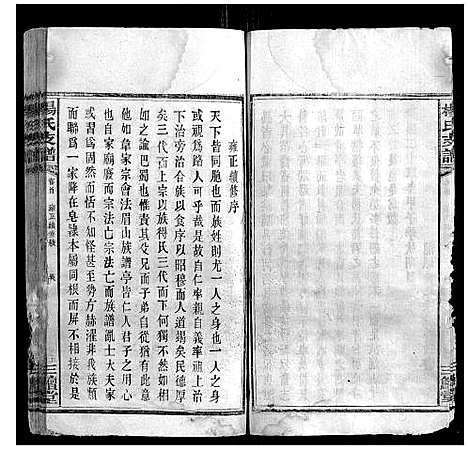 雍正續修序
天下皆同胞也而族姓則尤一人之身也一人之身
視爲路人可乎哉是故自仁率親自義率祖上治
下治旁治合族以食序以昭穆而人道竭矣民德厚
矣三代而上宗以族得民三代而下何獨不然如相
如之諭巴蜀也惟責其父兄而子弟自從猶有此意
他如韋家宗會法眉山族譜亭皆仁人君子之用心
也自家廟廢而宗法亡宗法亡而族譜亂士大夫家
或習爲固然而恬不知怪甚至勢方赫濯非我族類
而聯爲一家降在皂隸本屬同根而屏不相接於是
楊氏支譜
卷首
雍正續修序
三鱣堂
楊氏支譜
三鱣堂